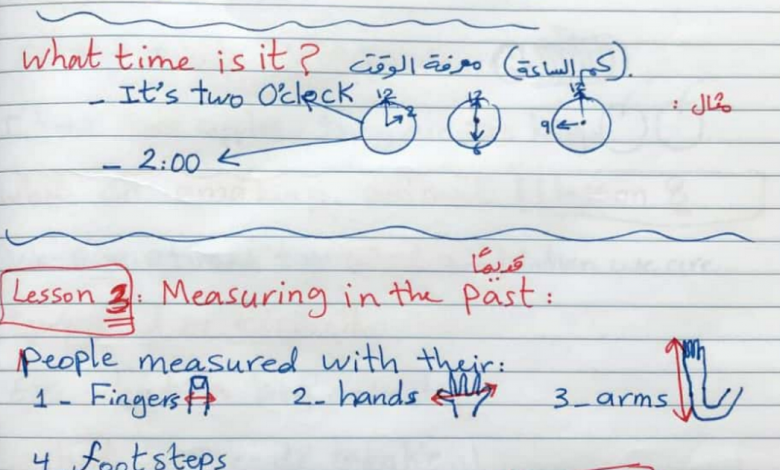 What time is it? معرفة الوقت (كم الساعة).
- It's two O'clock 12 2 12 6 12 9 مثال :
- 2:00
قديمًا
Lesson 3: Measuring in the past:
People measured with their:
1 - Fingers 2 - hands 3 - arms
4 footsteps